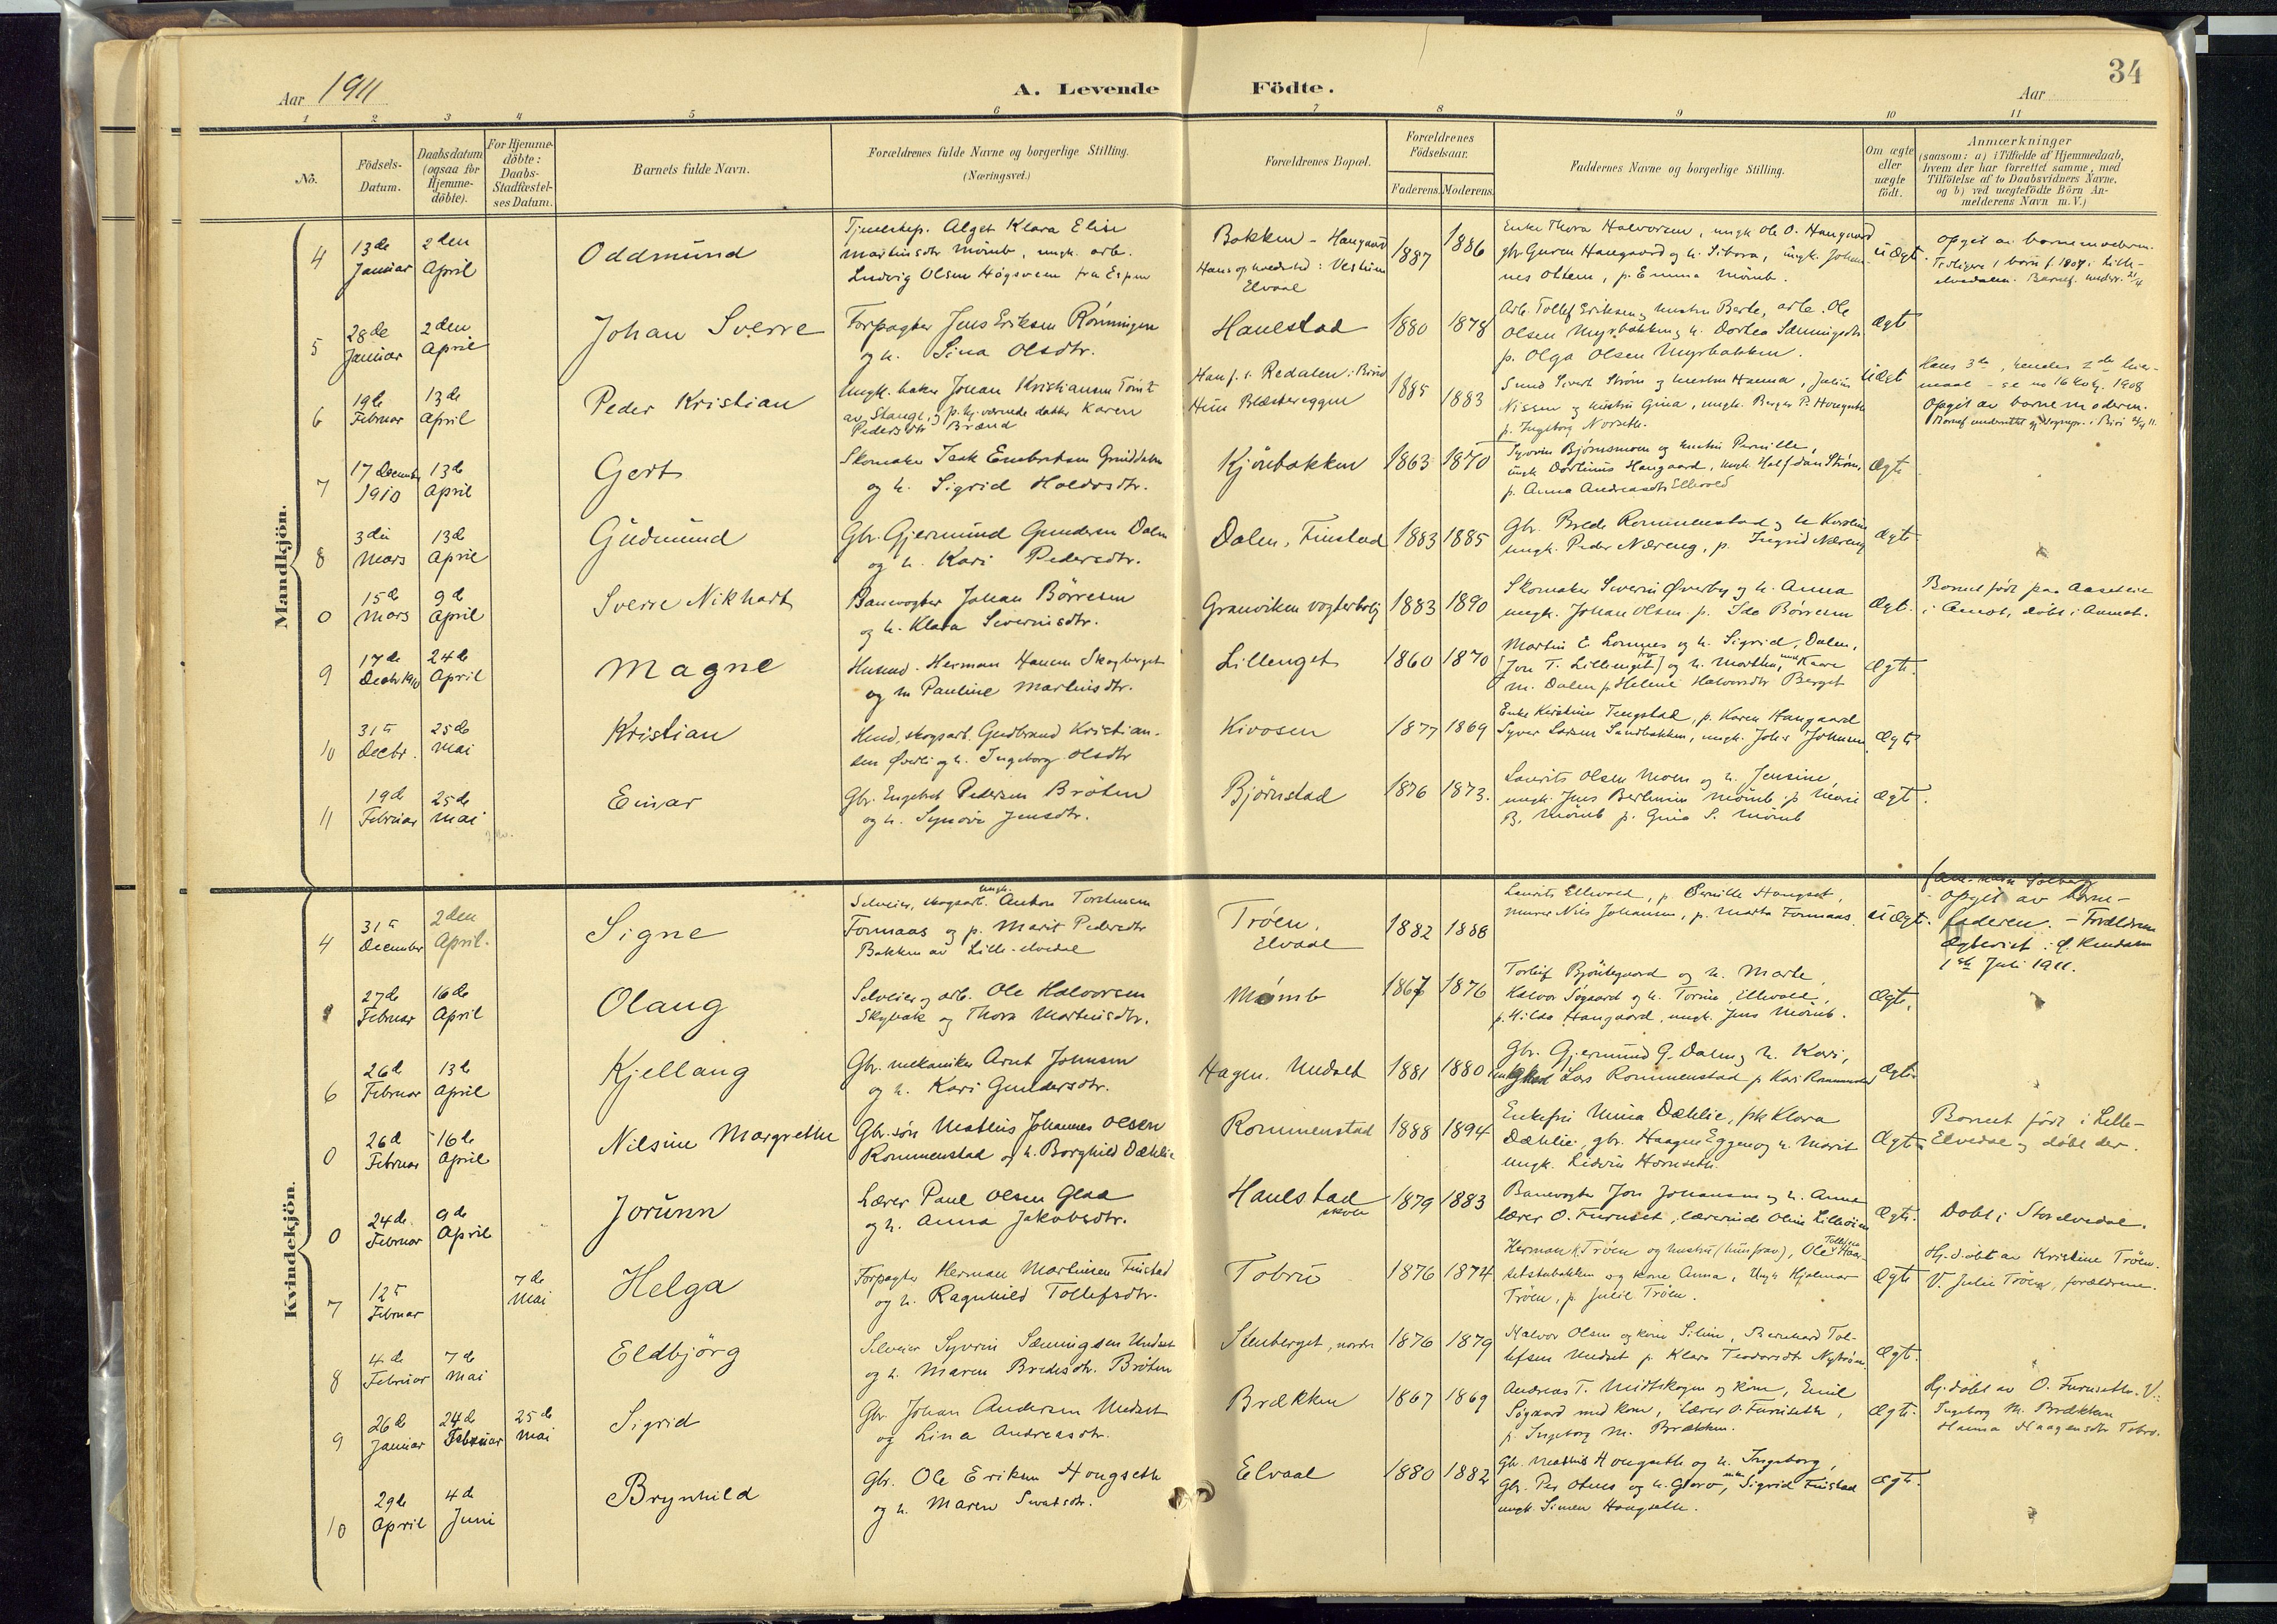 34
Aar 1911
A. Levende Födte.
Aar
1 2 3 4 5 6 7 8 9 10 11
No.
Födsels-Datum.
Daabsdatum (ogsaa for Hjemme-döbte).
For Hjemme-döbte: Daabs-Stadfæstel-ses Datum.
Barnets fulde Navn.
Forældrenes fulde Navne og borgerlige Stilling.
(Næringsvei.)
Forældrenes Bopæl.
Forældrenes Födselsaar.
Faderens. Moderens.
Faddernes Navne og borgerlige Stilling.
Om ægte eller uægte födt.
Anmærkninger
(saasom: a) i Tilfælde af Hjemmedaab,
hvem der har forrettet samme, med
Tilföielse af to Daabsvidners Navne,
og b) ved uægtefödte Börn An-
melderens Navn m.V.)
Mandkjön.
4 13de Januar 2den April Oddmund
Tjenestep. Alget Klara Elise
Martinsdtr Mömb, ungk. arb.
Ludvig Olsen Högsveen fra Espen
Bakken - Haugaard
Elvaal
1887 1886
Enke Thora Halvorsen, ungk Ole O. Haugaard
gbr. Guren Haugaard og h. Sibora, ungk. Johan-
nes Ottem, p. Emma Mömb.
uægt.
opgit av barnemoderen.
5 28de Januar 2den April Johan Sverre
Forpagter Jens Eriksen Rönningen
og h. Sina Olsdtr.
Hanestad 1880 1878
Arb. Tollef Eriksen og hustru Berte, arb. Ole
Olsen Myrbakken og h. Dortea Sæmingsdtr
p. Olga Olsen Myrbakken.
Ægt
6 19de Februar 13de April Peder Kristian
Ungk. baker Johan Kristiansen Tomt
av Stange, og p. hj.værende datter Karen
Pedersdtr Brænd
Han f. i Redalen i Biri
Hun Blæstereggen
1885 1883
Smed Sivert Ström og hustru Hanna, Julius
Nissen og hustru Gina, ungk. Birger P. Hougseth
p. Ingeborg Norseth.
Uægt
Hans 3die, hendes 2det leier-
maal - se no 16 kokj. 1908
Opgit av barnemoderen.
7 17 Decemb 1910 13de April Gert
Skomaker Isak Embretsen Grinddalen
og h. Sigrid Holdosdtr.
Kjönbakken 1863 1870
Syverin Björnsmoen og hustru Pernille,
ungk Dortinus Haugaard, ungk. Halfdan Ström,
p. Anna Andreasdtr Ellevold
Ægte
8 3die Mars 13de April Gudmund
Gbr. Gjermund Gundersen Dalen
og h. Kari Pedersdtr.
Dalen, Finstad 1883 1885
Gbr. Brede Rommenstad og h. Karoline
ungk. Peder Næreng, p. Ingrid Næreng
Ægte
0 15de Mars 9de April Sverre Nikhart
Banevogter Johan Börresen
og h. Klara Severinsdtr.
Granviken vogterbolig 1883 1890
Skomaker Severin Øverby og h. Anna
ungk. Johan Olsen p. Ida Börresen
Ægt.
Barnet född paa Aaseteie
i Aamot, döbt i Aamot.
9 17de Decbr 1910 24de April Magne
Husmd. Herman Hansen Skogberget
og h. Pauline Martinsdtr.
Lillenget 1860 1870
Martin E. Lomnes og h. Sigrid, Dalen,
[Jon T. Lillenget] og h. Marthe, Kaare
M. Dalen p Helene Halvorsdtr Berget
Ægte.
10 31te Decbr. 25de Mai Kristian
Husmd, skogsarb. Gudbrand Kristian-
sen Øverli og h. Ingeborg Olsdtr
Kivosen 1877 1869
Enke Kirstine Tingstad, p. Karen Haugaard
Syver Larsen Sandbakken, ungk. Johs Johnsen
Ægte
11 19de Februar 25de Mai Einar
Gbr. Engebret Pedersen Bröten
og h. Synöve Jensdtr.
Björnstad 1876 1873.
Laurits Olsen Moen og h. Jensine,
ungk. Jens Bertinius Mömb p Marie
B. Mömb p. Gina S. Mömb
Ægt.
Kvindekjön.
4 31te December 2den April. Signe
Selveier, skogsarb. ungk. Anton Torstensen
Formaas og p. Marit Pedersdtr
Bakken av Lille-elvedal
Tröen, Elvaal 1882 1888
Laurits Ellevold, p. Pernille Hougset,
murer Nils Johansen, p. Marta Formaas
uægt.
opgit av barne-
faderen. - Forældrene
ægteviet i Ø. Rendalen
1ste Juli 1911.
27de Februar 16de April Olaug
Selveier og arb. Ole Halvorsen
Skybak og Thora Martinsdtr.
Mömb 1867 1876
Torleif Bjöntegaard og h. Marte,
Halvor Søgaard og h. Torine, Ellevold,
p. Hilda Haugaard, ungk. Jens Mömb.
Ægte.
6 26de Februar 13de April Kjellaug
Gbr. mekaniker Arnt Johnsen
og h. Kari Gundersdtr.
Hagen. Undset 1881 1880
Gbr. Gjermund G. Dalen og h. Kari,
Lars Rommenstad p Kari Rommenstad
Ægte
0 26de Februar 16de April Nilsine Margrethe
Gbr. sön Mathias Johannes Olsen
Rommenstad og h. Borghild Dæhlie
Rommenstad 1888 1894
Enkefru Mina Dæhlie, frk Klara
Dæhlie, gbr. Haagen Eggen og h. Marit
ungk. Ledvin Hornseth.
Ægte
Barnet född i Lille-
Elvedal og döbt der.
0 24de Februar 9de April Jorunn
Lærer Paul Olsen Glaa
og h. Anna Jakobsdtr.
Hanestad skole 1879 1883
Banevogter Jon Johansen og h. Anne
lærer O. Furuset, lærerinde Oline Lilleöien
Ægte.
Döbt i Storelvedal.
7 12te Februar 7de Mai Helga
Forpagter Herman Martinsen Finstad
og h. Ragnhild Tollefsdtr.
Tobru 1876 1874
Herman K. Tröen og hustru (Finstad), Ole Tollefsen Haar-
setstubakken og kone Anna, Ungk Hjalmar
Tröen, p. Julie Tröen.
Ægte
Hj. döbt av Kristine Tröen.
V. Julie Tröen, forældrene.
8 4de Februar 7de Mai Eldbjörg
Selveier Syverin Sæmingsen Undset
og h. Maren Bredesdtr. Bröten
Stenberget, nordre 1876 1879
Halvor Olsen og kone Siline, Bernhard Tol-
lefsen Undset p. Klara Teodorsdtr Nytröen.
Ægt.
9 26de Januar 24de Februar 25de Mai Sigrid
Gbr. Johan Andersen Undset
og Lina Andreasdtr.
Brækken 1867 1869
Andreas T. Midtskogen og kone, Emil
Søgaard med kone, Lærer O. Furuseth,
p. Ingeborg M. Brækken.
Ægte.
Hj. döbt av O. Furuseth. V.:
Ingeborg M. Brækken
Hanna Haagensdtr Tobro.
10 29de April 4de Juni Brynhild
Gbr. Ole Eriksen Hougseth
og h. Maren Sivertsdtr.
Elvaal 1880 1882
Gbr. Mathias Hougseth og h. Ingeborg,
Gbr. Per Otnes og h. Goro, Sigrid Finstad
ungk. Simen Hougseth.
Ægt.